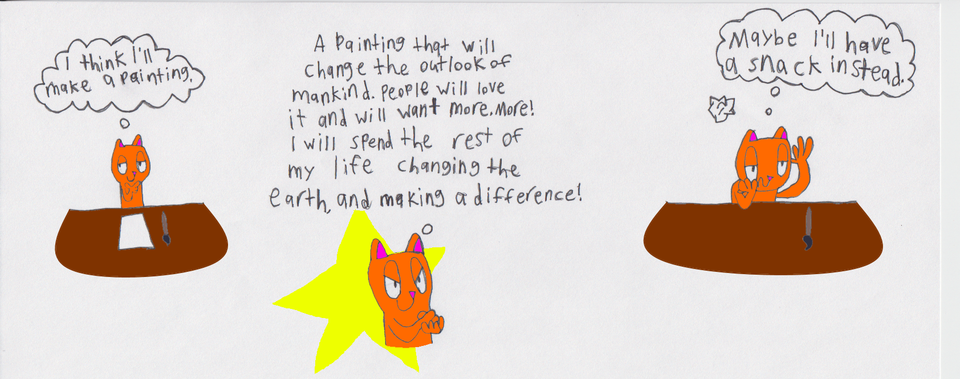 I think I'll
make a painting.
A painting that will
change the outlook of
mankind. People will love
it and will want more. More!
I will spend the rest of
my life changing the
earth, and making a difference!
Maybe I'll have
a snack instead.